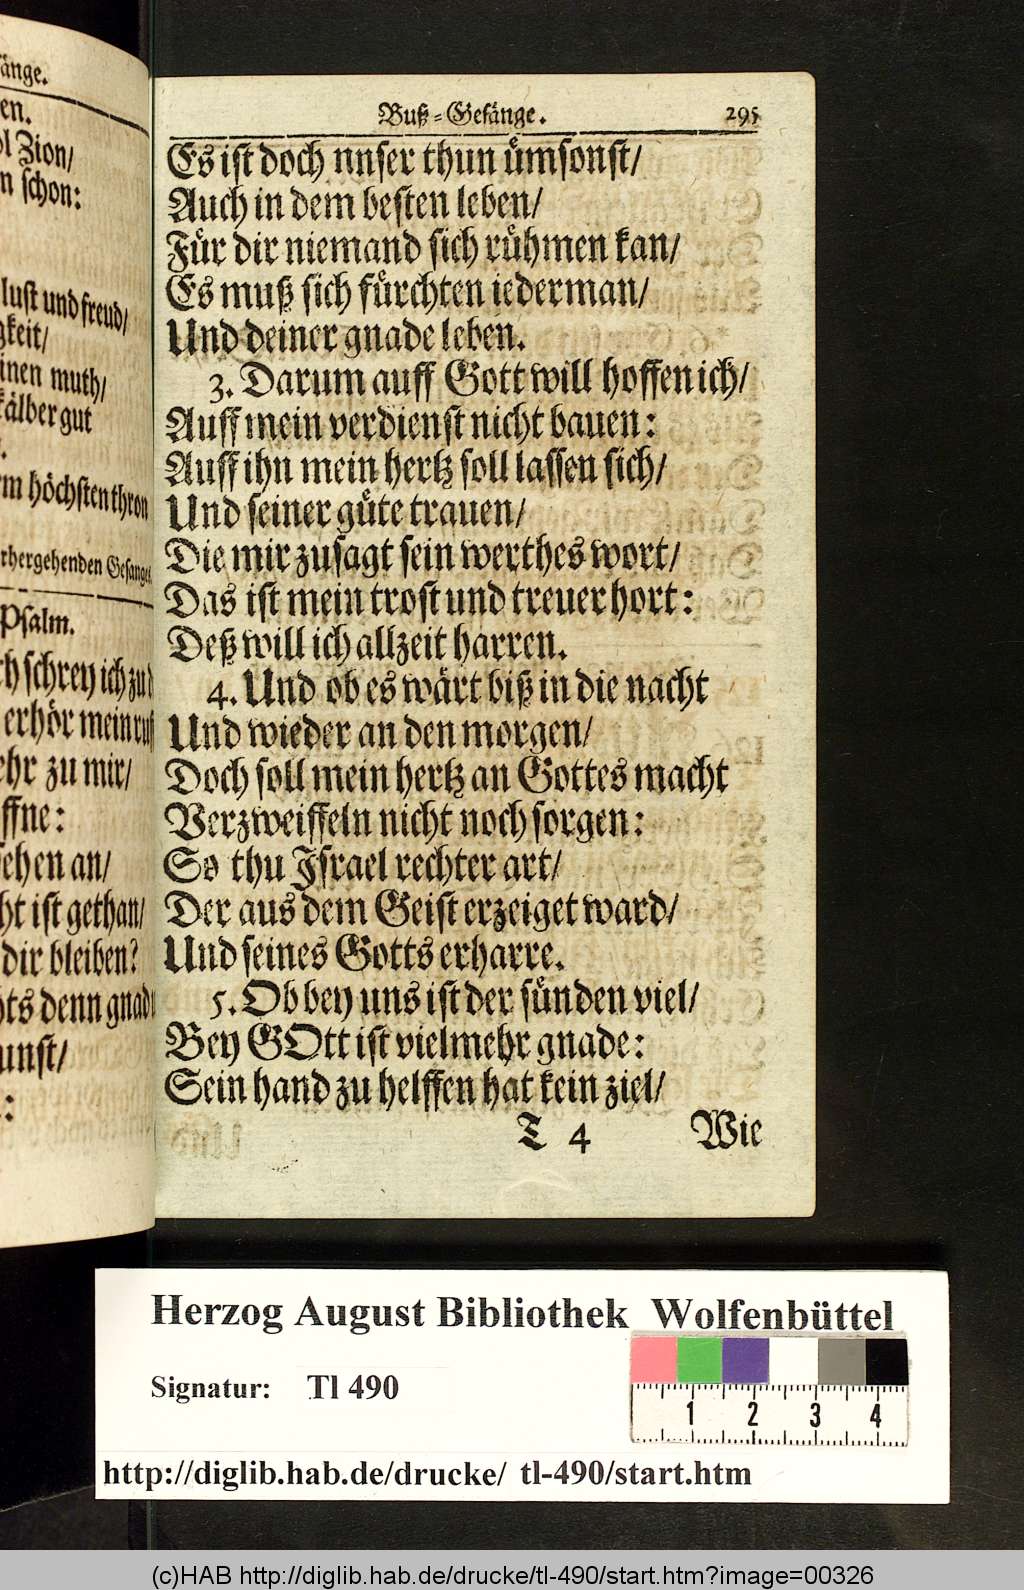 änge.
en.
ol Zion/
n schon:
lust und freud/
gkeit/
inen muth/
kälber gut
m höchsten thron
rhergehenden Gesanges
Psalm.
ch schrey ich zu d
erhör mein ruf
ehr zu mir/
ffne:
sehen an/
ht ist gethan/
dir bleiben?
hts denn gnad
unst/
Buß-Gesänge. 295
Es ist doch nnser thun ümsonst/
Auch in dem besten leben/
Für dir niemand sich rühmen kan/
Es muß sich fürchten iederman/
Und deiner gnade leben.
3. Darum auff Gott will hoffen ich/
Auff mein verdienst nicht bauen:
Auff ihn mein hertz soll lassen sich/
Und seiner güte trauen/
Die mir zusagt sein werthes wort/
Das ist mein trost und treuer hort:
Deß will ich allzeit harren.
4. Und ob es wärt biß in die nacht
Und wieder an den morgen/
Doch soll mein hertz an Gottes macht
Verzweiffeln nicht noch sorgen:
So thu Israel rechter art/
Der aus dem Geist erzeiget ward/
Und seines Gotts erharre.
5. Ob bey uns ist der sünden viel/
Bey GOtt ist vielmehr gnade:
Sein hand zu helffen hat kein ziel/
T 4 Wie
Herzog August Bibliothek Wolfenbüttel
Signatur: Tl 490
1 2 3 4
http://diglib.hab.de/drucke/ tl-490/start.htm
(c)HAB http://diglib.hab.de/drucke/tl-490/start.htm?image=00326